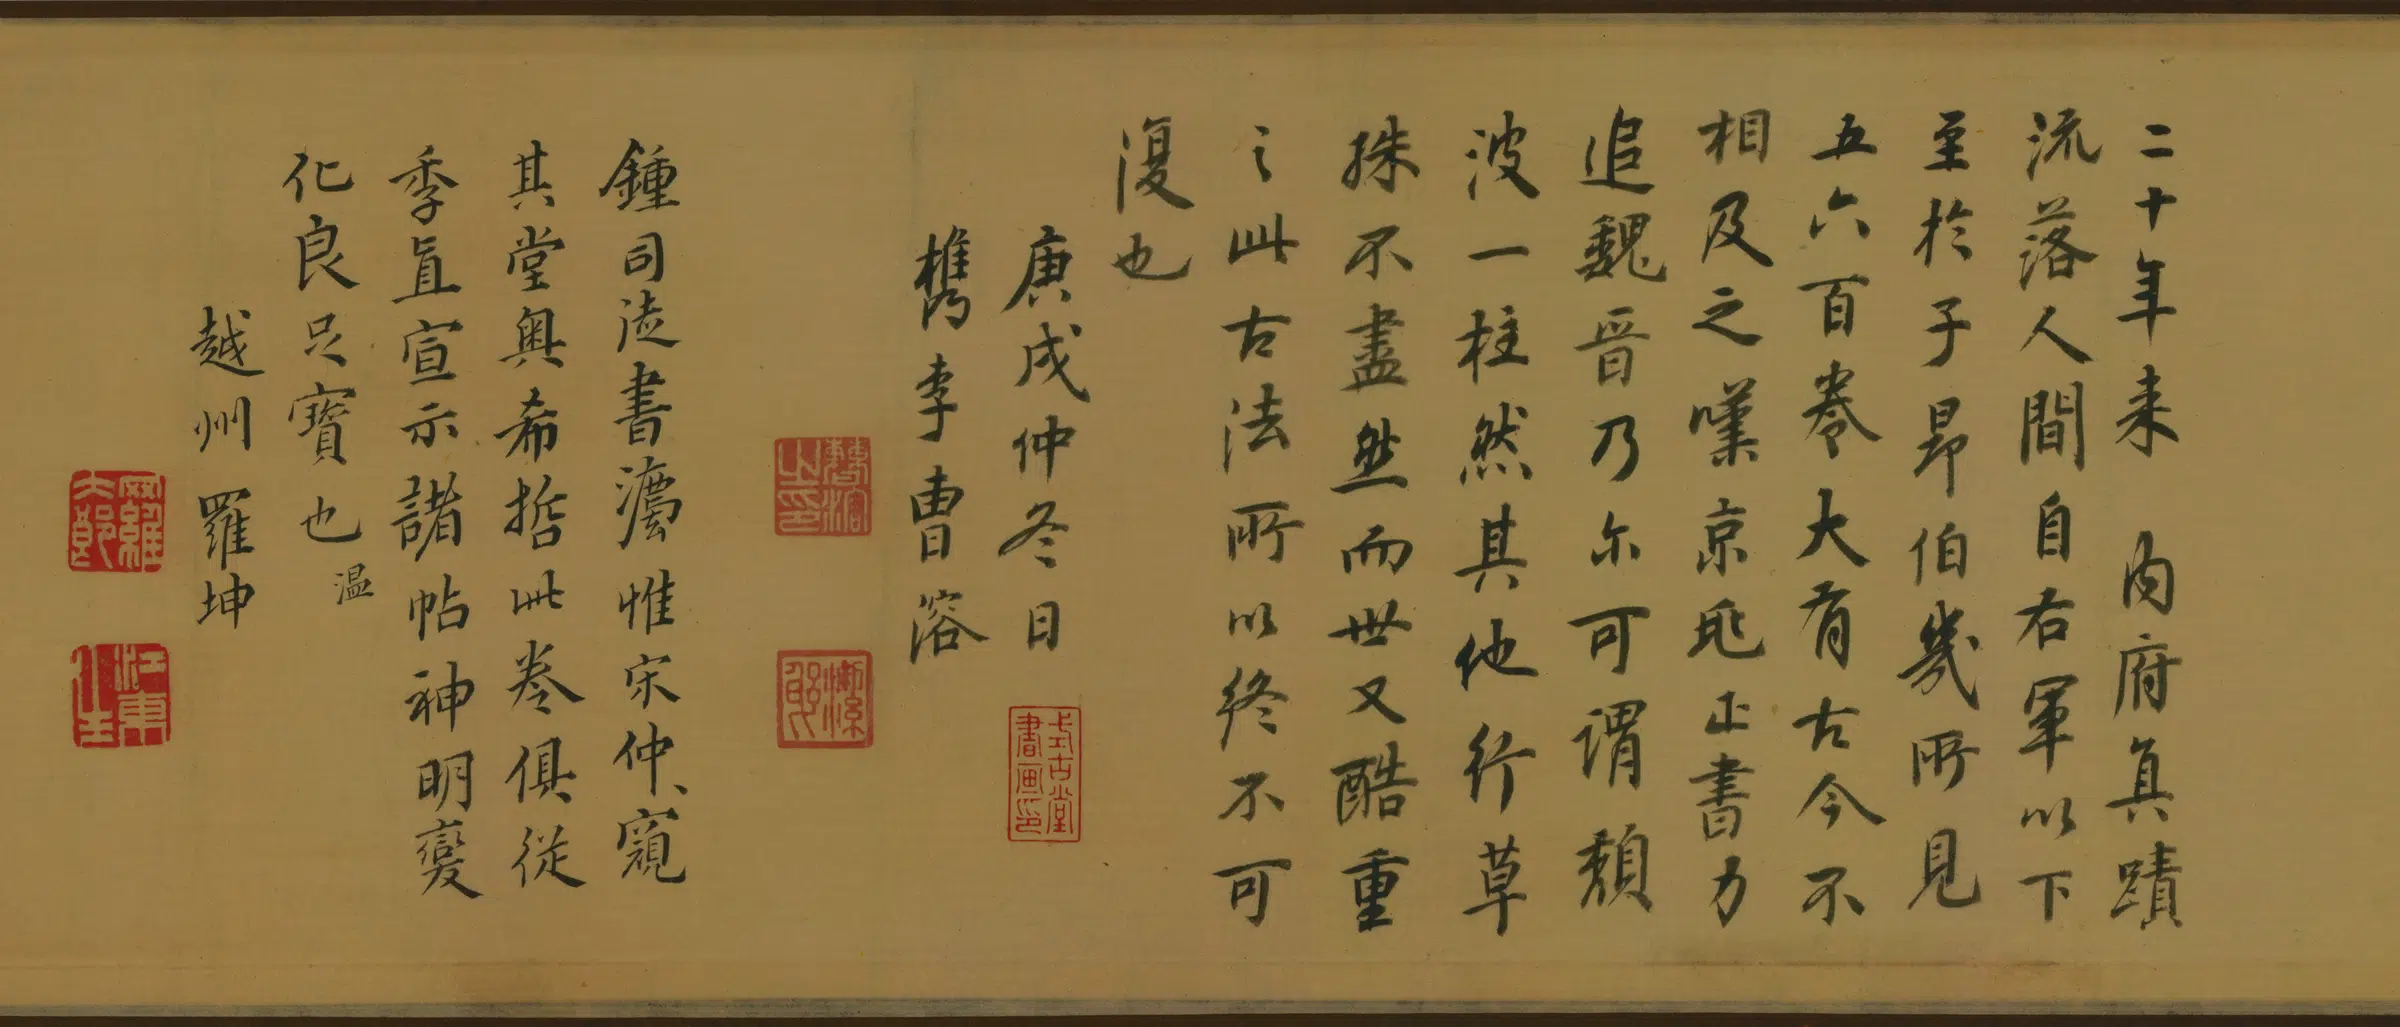 二十年来 内府真蹟
流落人間自右軍以下
至於子昂伯幾所見
五六百卷大有古今不
相及之嘆京兆正書力
追魏晋乃尓可謂頹
波一柱然其他行草
殊不盡然而世又酷重
之此古法所以終不可
復也
庚戌仲冬日
檇李曹溶
式古堂
書画印
曹溶
之印
潔
躬
鍾司徒書灋惟宋仲溫窺
其堂奧希哲此卷俱從
季直宣示諸帖神明變
化良足寶也
越州羅坤
羅
大郎
江東